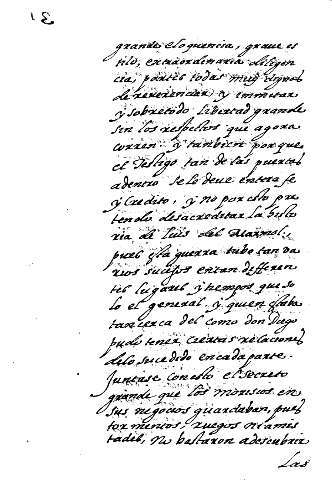 grande eloquencia, graue es
tilo, extraordinaria diligen
cia, partes todas muy dignas
de reuerenciar y immitar
y sobretodo libertad grande
sin los respectos que agora
corren y tanbien por que
el testigo tan de las puertas
adentro se le deue entera fe
y credito, y no por esto pre
tendo desacreditar la histo
ria de Luis del Marmol.
pues esta guerra tubo tan ua
rios sucesos en tan differen
tes lugares y tiempos que so
lo el general, y quien estaba
tan cerca del como don Diego
pudo tener ciertas relaciones
delo sucedido en cada parte.
Juntase con esto el secreto
grande que los moriscos en
sus negocios guardaban, pues
tormentos, ruegos ni amis
tades, no bastaron a descubrir
Las